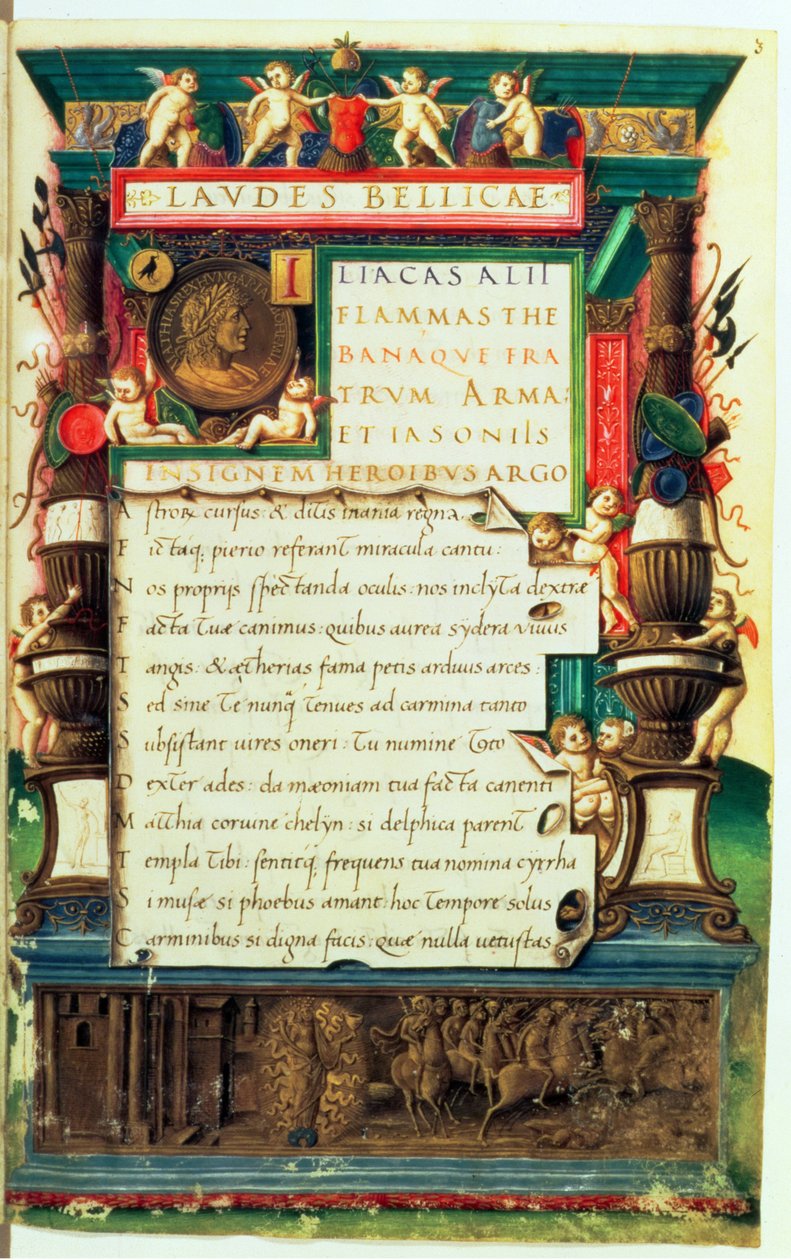 3
LAVDES BELLICAE
MATHIAS REX HVNGARIAE BOHEMIAE
ILIACAS ALII
FLAMMAS THE
BANAQVE FRA
TRVM ARMA:
ET IASONIIS
INSIGNEM HEROIBVS ARGO
Astrorꝝ cursus: & ditis inania regna.
Fictaq; pierio referant miracula cantu:
Nos proprijs spectanda oculis: nos inclÿta dextræ
Facta tuæ canimus: quibus aurea sÿdera viuus
Tangis: & ætherias fama petis arduus arces:
Sed sine te nunq̃ tenues ad carmina tanto
Subsistant uires oneri: tu numine toto
Dexter ades: da mæoniam tua facta canenti
Matthia coruine chelÿn: si delphica parent
Templa tibi: sentitq; frequens tua nomina cÿrrha
Si musæ si phoebus amant: hoc tempore solus
Carminibus si digna facis: quæ nulla uetustas